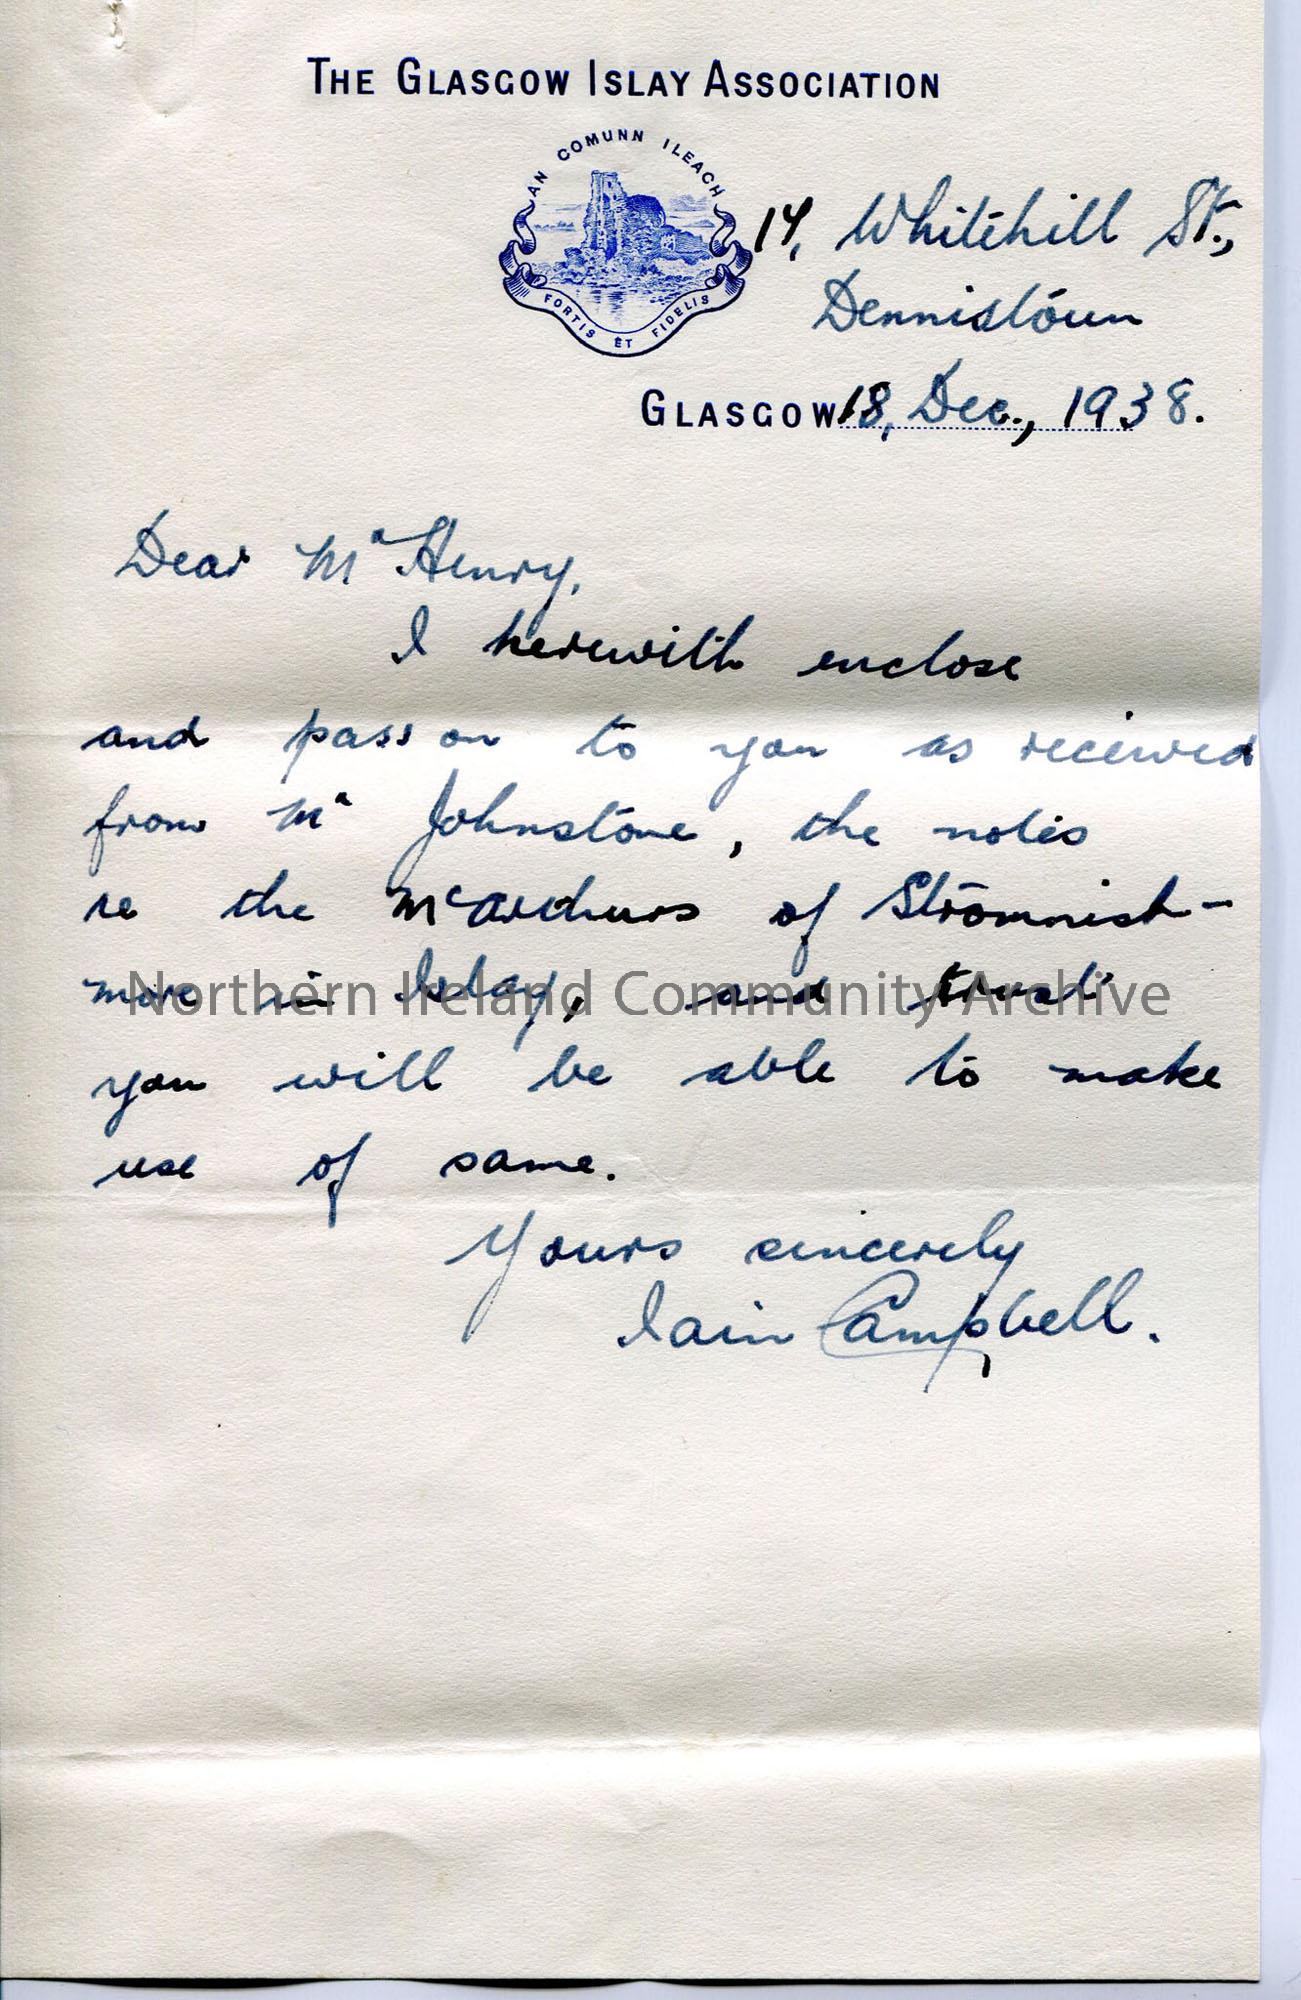 THE GLASGOW ISLAY ASSOCIATION
AN COMUNN ILEACH
FORTIS ET FIDELIS
14, Whitehill St.,
Dennistoun
GLASGOW 18, Dec., 1938.
Dear Mr Henry,
I herewith enclose
and pass on to you as received
from Mr Johnstone, the notes
re the McArthurs of Stromnish-
more in Islay, and trust
Northern Ireland Community Archive
you will be able to make
use of same.
Yours sincerely
Iain Campbell.